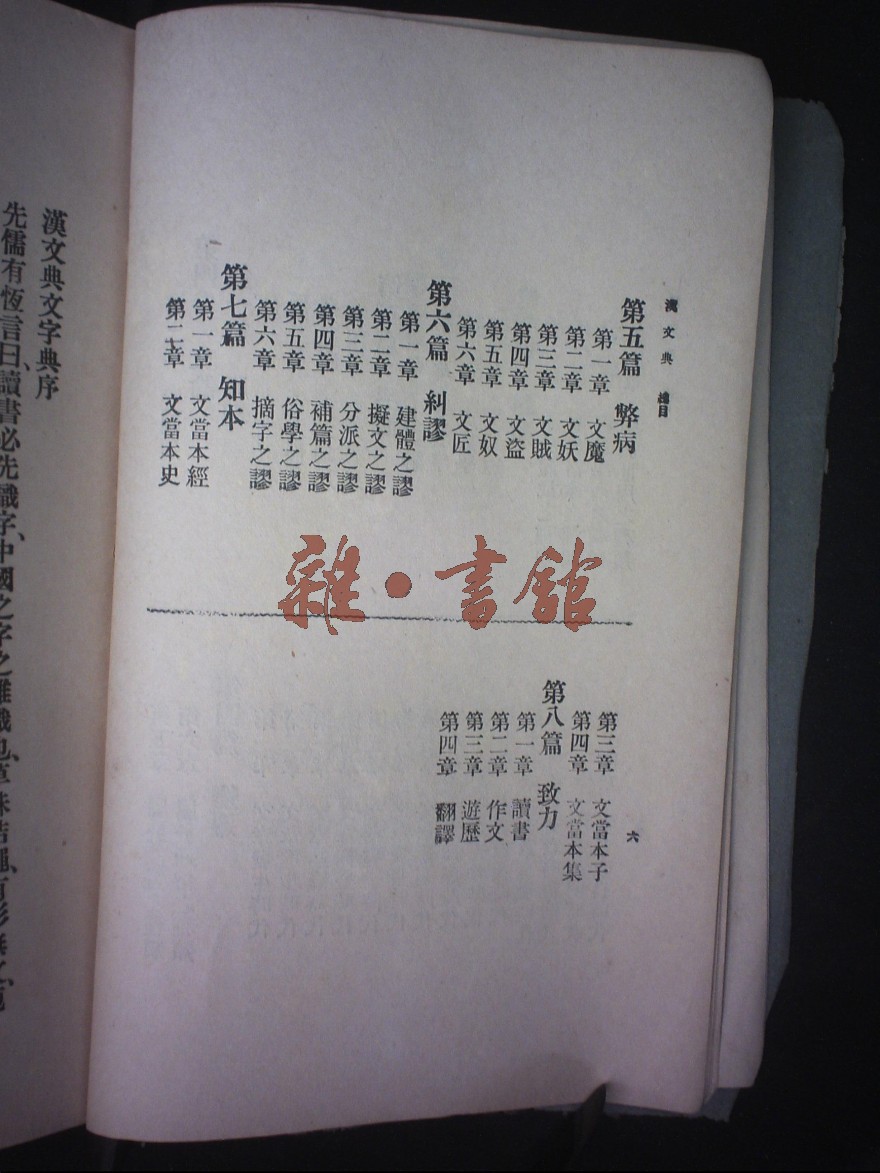 漢文典 總目
第五篇 弊病
第一章 文魔
第二章 文妖
第三章 文賊
第四章 文盜
第五章 文奴
第六章 文匠
第六篇 糾謬
第一章 建體之謬
第二章 擬文之謬
第三章 分派之謬
第四章 補篇之謬
第五章 俗學之謬
第六章 摘字之謬
第七篇 知本
第一章 文當本經
第二章 文當本史
雜·書館
六
第三章 文當本子
第四章 文當本集
第八篇 致力
第一章 讀書
第二章 作文
第三章 遊歷
第四章 翻譯
漢文典文字典序
先儒有恆言曰、讀書必先識字、中國之字之難識也、